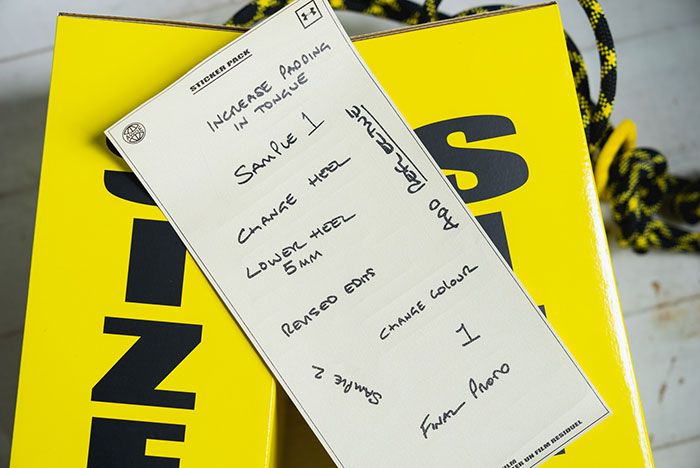 STICKER PACK
INCREASE PADDING
IN TONGUE
SAMPLE 1
ADD REFLECTIVE!
CHANGE HEEL
LOWER HEEL
5MM
REVISED EDITS
CHANGE COLOUR
1
SAMPLE 2
FINAL PROTO
ER UN FILM RESIDUEL
S
IZE